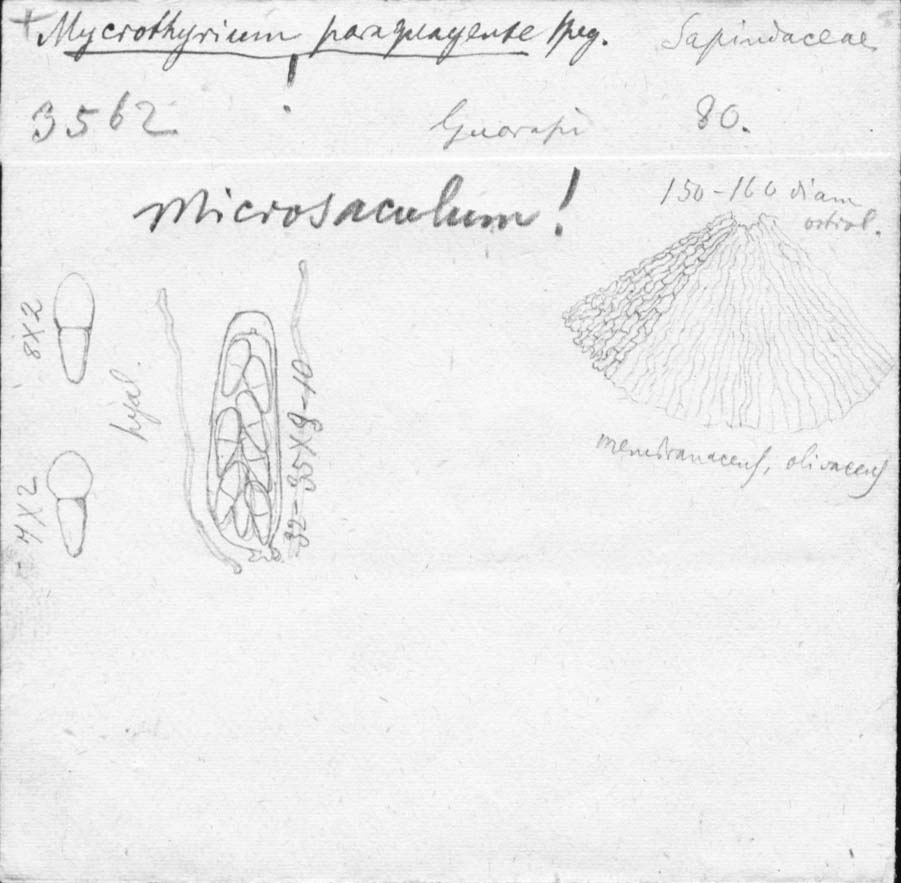 + Mycrothyrium paraguayense Speg. Sapindaceae
!
3562 Guarapi 80.
Microsaculum!
150-160 diam
ostiol.
8×2
hyal.
7×2
32-35×9-10
membranaceus, olivaceus